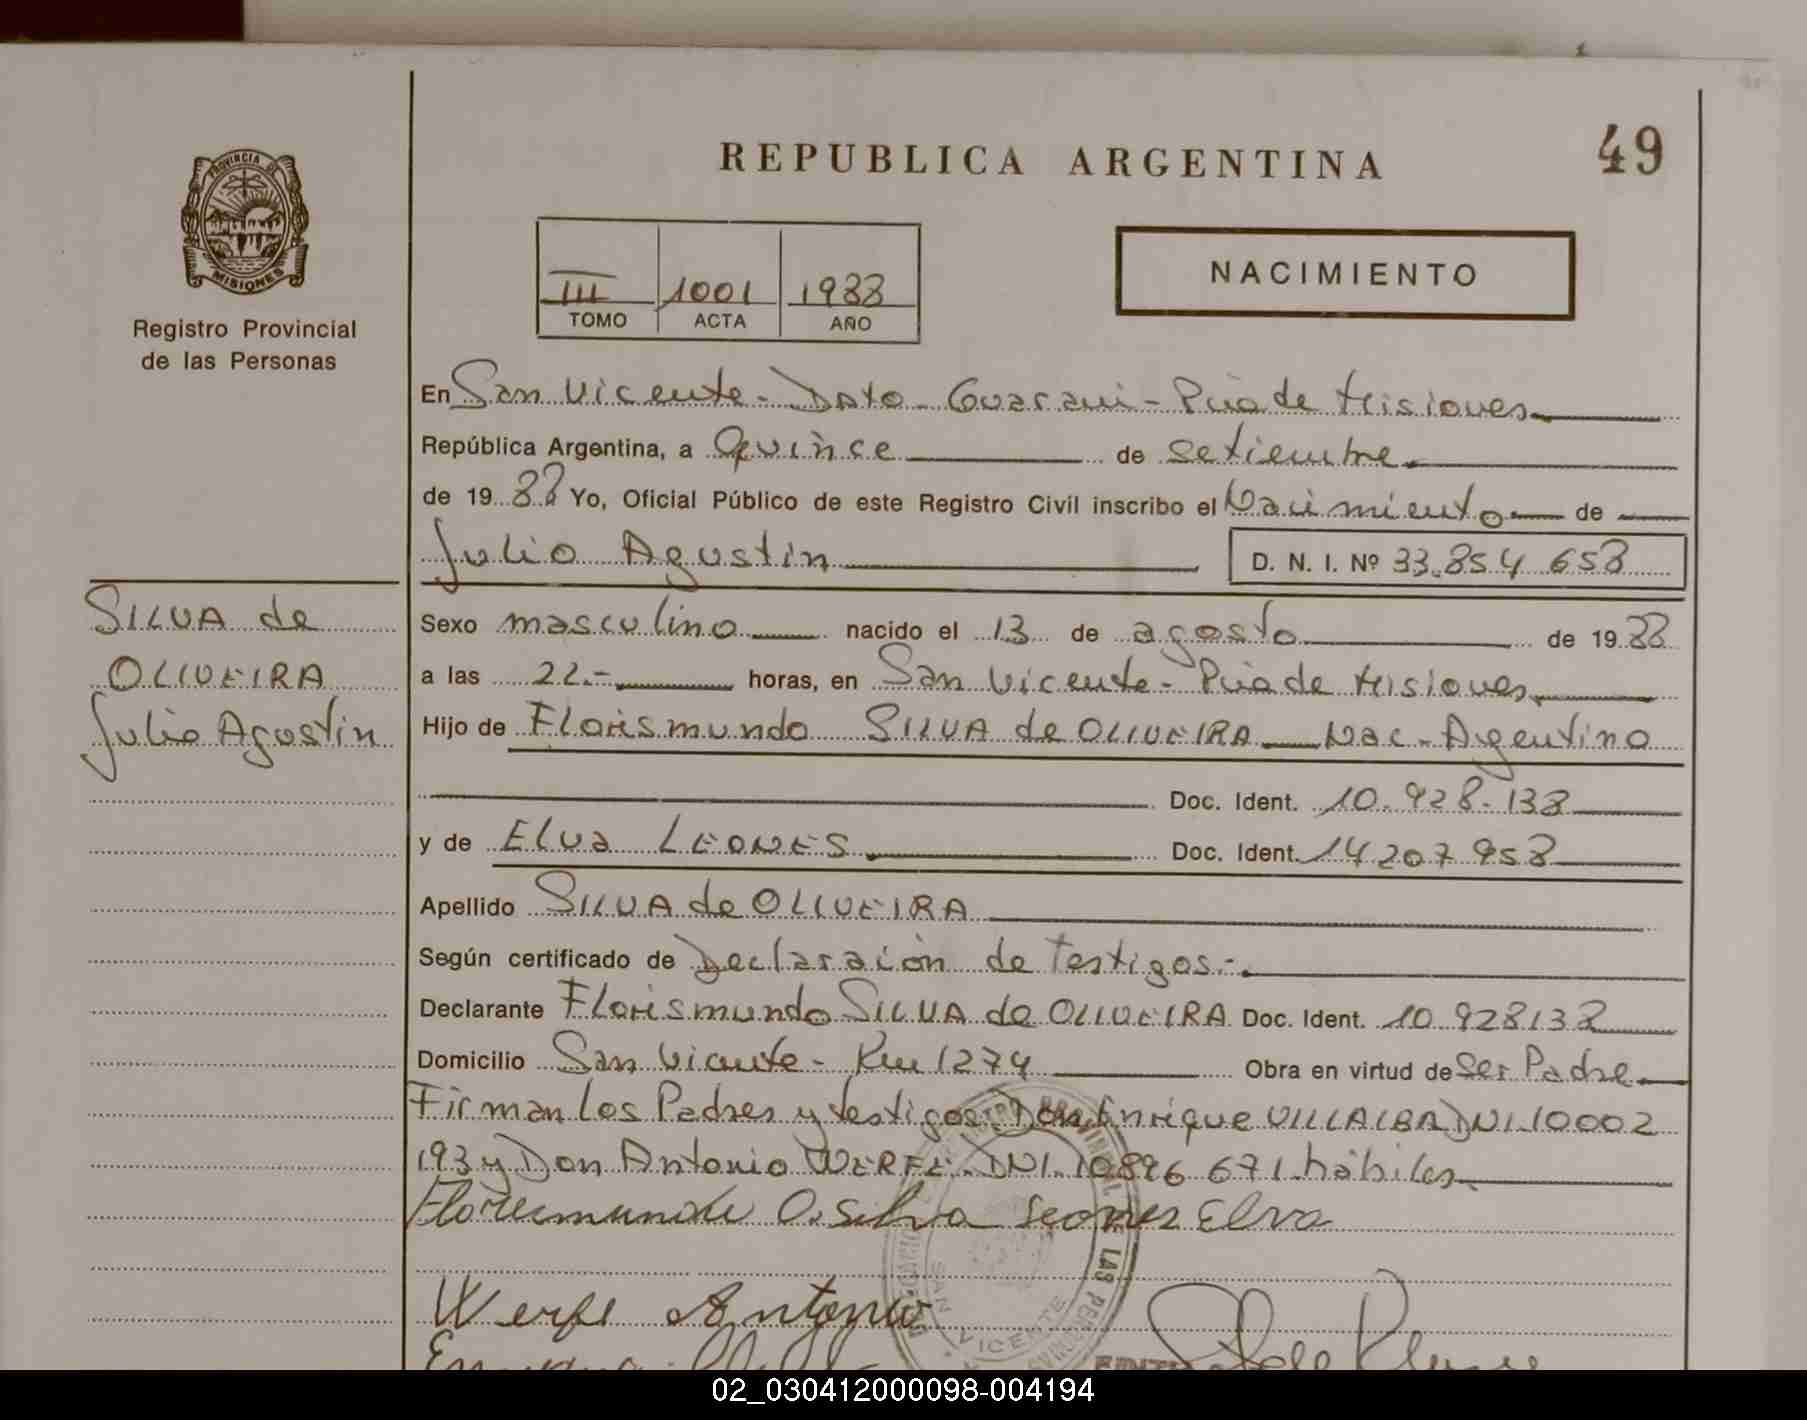 REPUBLICA ARGENTINA
49
PROVINCIA DE
MISIONES
Registro Provincial
de las Personas
III 1001 1988
TOMO ACTA AÑO
NACIMIENTO
En San Vicente - Dpto - Guarani - Pcia de Misiones
República Argentina, a Quince de setiembre
de 19 88 Yo, Oficial Público de este Registro Civil inscribo el Nacimiento de
Julio Agustin
D. N. I. Nº 33.854 658
SILVA de
OLIVEIRA
Julio Agustin
Sexo masculino nacido el 13 de agosto de 19 88
a las 22.- horas, en San Vicente - Pcia de Misiones
Hijo de Florismundo SILVA de OLIVEIRA Nac. Argentino
Doc. Ident. 10.928.138
y de Elva LEONES Doc. Ident. 14 207 958
Apellido SILVA de OLIVEIRA
Según certificado de Declaración de Testigos.-
Declarante Florismundo SILVA de OLIVEIRA Doc. Ident. 10 928138
Domicilio San Vicente - Km 1274 Obra en virtud de Ser Padre
Firman los Padres y testigos Don Enrique VILLALBA DNI 10002
193 y Don Antonio WERFE. DNI. 10896 671 hábiles
O. Silva Leones Elva
Werfe Antonio
SAN VICENTE
02_030412000098-004194